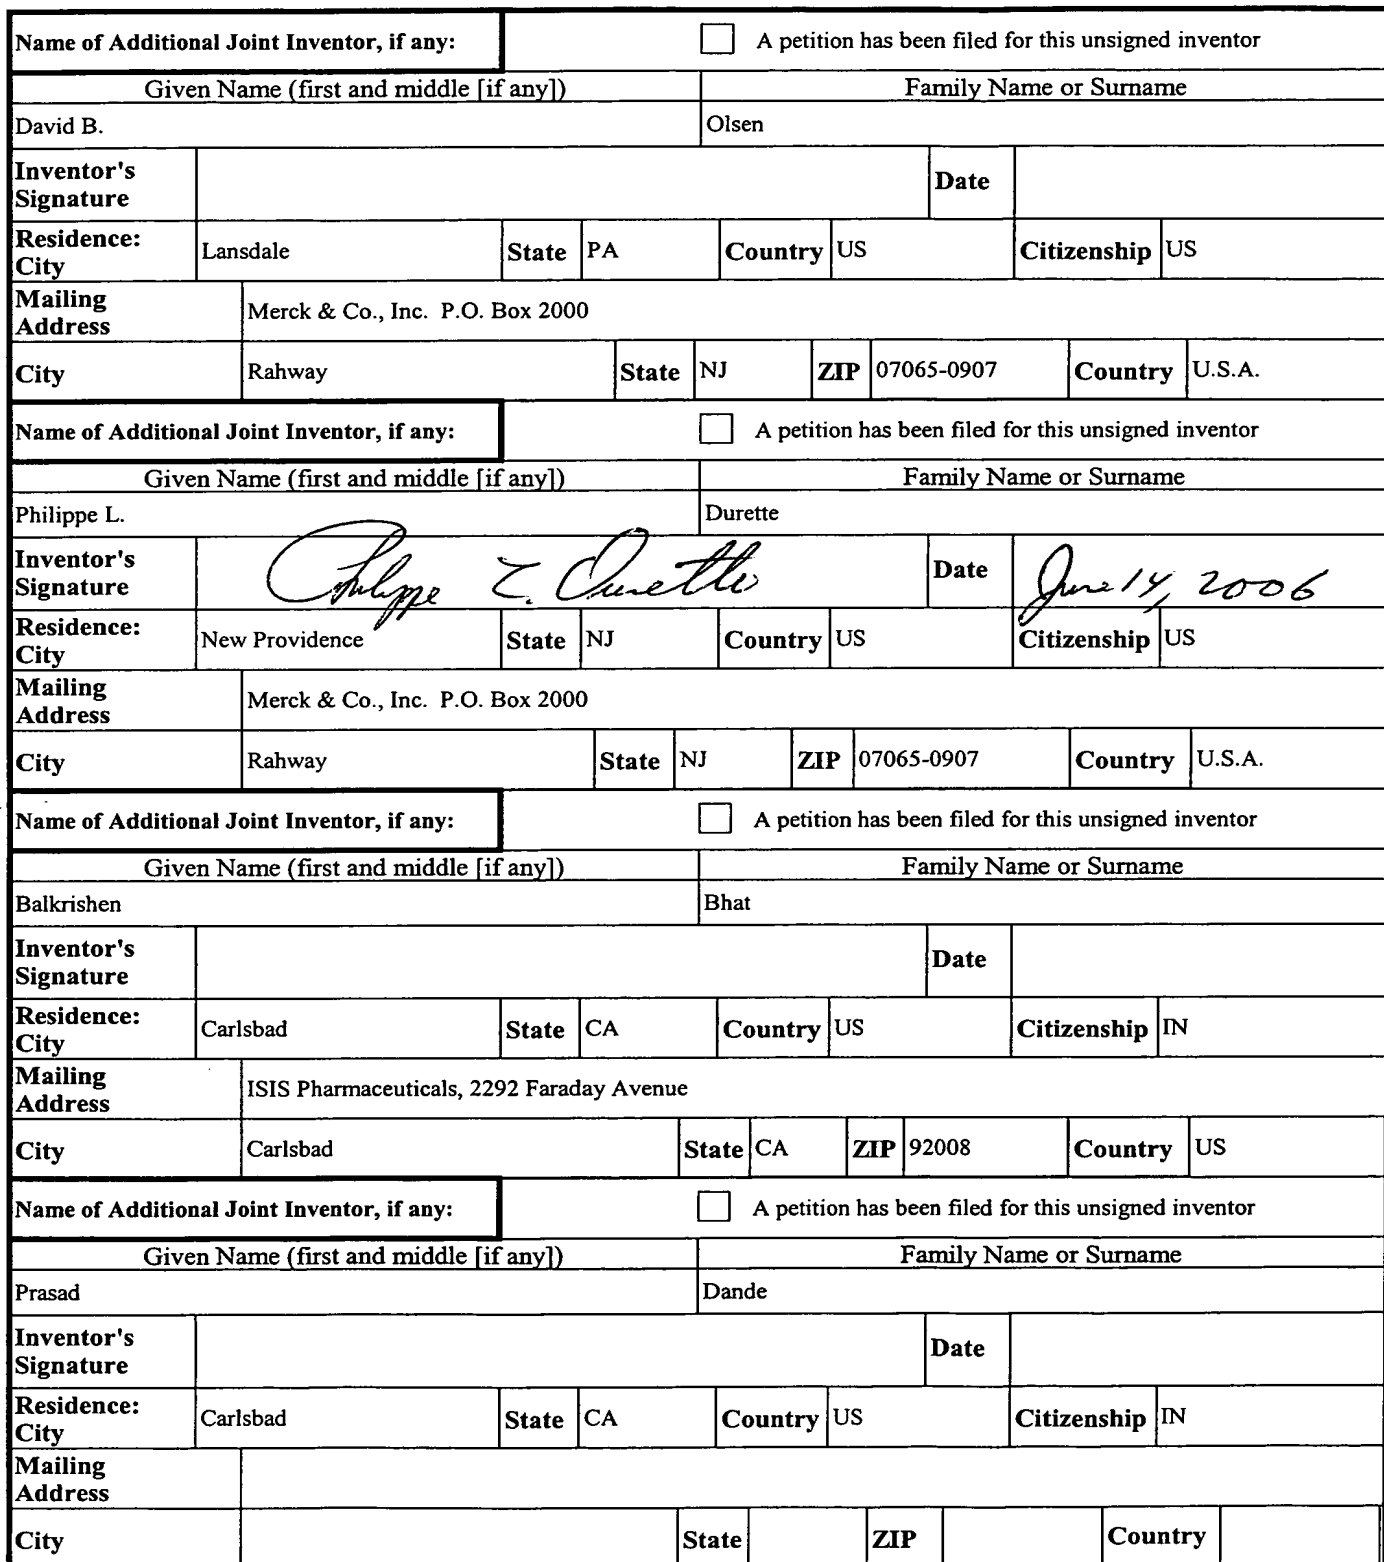 Name of Additional Joint Inventor, if any: A petition has been filed for this unsigned inventor
Given Name (first and middle [if any]) Family Name or Surname
David B. Olsen
Inventor's Signature Date
Residence: City Lansdale State PA Country US Citizenship US
Mailing Address Merck & Co., Inc. P.O. Box 2000
City Rahway State NJ ZIP 07065-0907 Country U.S.A.
Name of Additional Joint Inventor, if any: A petition has been filed for this unsigned inventor
Given Name (first and middle [if any]) Family Name or Surname
Philippe L. Durette
Inventor's Signature Philippe L. Durette Date June 14, 2006
Residence: City New Providence State NJ Country US Citizenship US
Mailing Address Merck & Co., Inc. P.O. Box 2000
City Rahway State NJ ZIP 07065-0907 Country U.S.A.
Name of Additional Joint Inventor, if any: A petition has been filed for this unsigned inventor
Given Name (first and middle [if any]) Family Name or Surname
Balkrishen Bhat
Inventor's Signature Date
Residence: City Carlsbad State CA Country US Citizenship IN
Mailing Address ISIS Pharmaceuticals, 2292 Faraday Avenue
City Carlsbad State CA ZIP 92008 Country US
Name of Additional Joint Inventor, if any: A petition has been filed for this unsigned inventor
Given Name (first and middle [if any]) Family Name or Surname
Prasad Dande
Inventor's Signature Date
Residence: City Carlsbad State CA Country US Citizenship IN
Mailing Address
City State ZIP Country